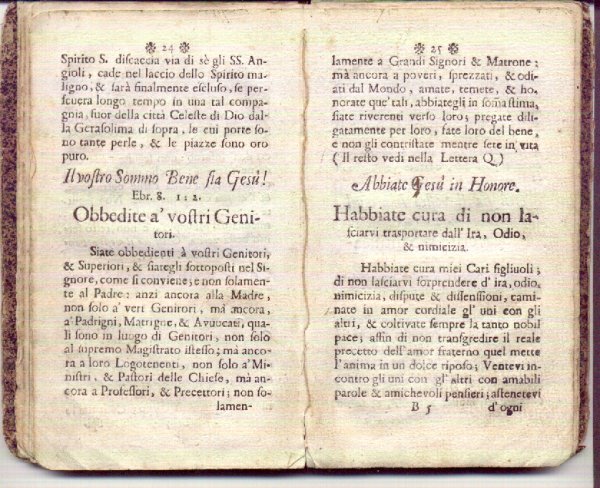 ❉ 24 ❉
Spirito S. discaccia via di sè gli SS. An-
gioli, cade nel laccio dello Spirito ma-
ligno, & sarà finalmente escluso, se per-
seuera longo tempo in una tal compa-
gnia, fuor della città Celeste di Dio dal-
la Gerasolima di sopra, le cui porte so-
no tante perle, & le piazze sono oro
puro.
Il vostro Sommo Bene sia Gesù!
Ebr. 8. 1: 2.
Obbedite a' vostri Geni-
tori.
Siate obbedienti à vostri Genitori,
& Superiori, & siategli sottoposti nel Si-
gnore, come si conviene; e non solamen-
te al Padre: anzi ancora alla Madre,
non solo a' veri Genitori, mà ancora,
a' Padrigni, Matrigne, & Avuocati, qua-
li sono in luogo di Genitori, non solo
al supremo Magistrato istesso; mà anco-
ra a loro Logotenenti, non solo a' Mi-
nistri, & Pastori delle Chiese, mà an-
cora a Professori, & Precettori; non so-
lamen-
❉ 25 ❉
lamente a Grandi Signori & Matrone;
mà ancora a poveri, sprezzati, & odi-
ati dal Mondo, amate, temete, & ho-
norate que'tali, abbiategli in som̃a stima,
siate riverenti verso loro; pregate dili-
gatamente per loro, fate loro del bene,
e non gli contristate mentre sete in vita
( Il resto vedi nella Lettera Q )
Abbiate Gesù in Honore.
Habbiate cura di non la-
sciarvi trasportare dall' Ira, Odio,
& nimicizia.
Habbiate cura miei Cari figliuoli;
di non lasciarvi sorprendere d' ira, odio,
nimicizia, dispute & dissensioni, cami-
nate in amor cordiale gl' uni con gli
altri, & coltivate sempre la tanto nobil
pace; affin di non transgredire il reale
precetto dell'amor fraterno quel mette
l'anima in un dolce riposo; Ventevi in-
contro gli uni con gl' altri con amabili
parole & amichevoli pensieri; astenetevi
B 5 d'ogni